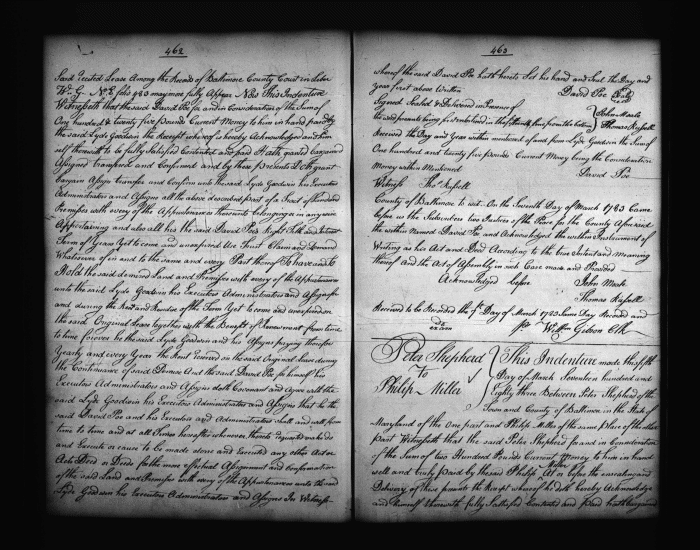 462
Said recited Lease Among the Records of Baltimore County Court in Liber
W. G. No. E folio 483 may more fully Appear Now This Indenture
Witnesseth that the said David Poe for and in Consideration of the Sum of
One hundred & Twenty five pounds Current Money to him in hand paid by
the said Lyde Goodwin the Receipt whereof is hereby Acknowledged and
self therewith to be fully Satisfied Contented and paid Hath granted bargained
Assigned transfered and Confirmed and by these presents Doth grant
bargain Assign transfer and Confirm unto the said Lyde Goodwin his Executors
Administrators and Assigns all the above described part of a Tract of Land and
Premises with every of the Appurtenances thereunto belonging or in any wise
Appertaining and also all his the said David Poe's Right Title and Interest
Term of Years Yet to come and unexpired Use Trust Claim and Demand
Whatsoever of in and to the same and every Part thereof To have and To
Hold the said demised Land and Premises with every of the Appurtenances
unto the said Lyde Goodwin his Executors Administrators and Assigns for
and during the Rest and Residue of the Term Yet to come and unexpired on
the said Original Lease together with the Benefit of Renewment from time
to time forever he the said Lyde Goodwin and his Assigns paying therefor
Yearly and every Year the Rent reserved in the said Original Lease during
the Continuance of said Demise And the said David Poe for himself his
Executors Administrators and Assigns doth Covenant and Agree with the
said Lyde Goodwin his Executors Administrators and Assigns that he the
said David Poe and his Executors and Administrators shall and will from
time to time and at all Times hereafter whenever thereto requested make do
and Execute or cause to be made done and Executed any other Act or
Acts Deed or Deeds for the more effectual Assignment and Confirmation
of the said Land and Premises with every of the Appurtenances unto the said
Lyde Goodwin his Executors Administrators and Assigns In Witness
463
whereof the said David Poe hath hereto Set his hand and Seal the Day and
Year first above Written
David Poe Seal
Signed Sealed & Delivered in Presence of
John Moale
Thomas Russell
Received the Day and Year within mentioned of and from Lyde Goodwin the Sum of
One hundred and twenty five pounds Current Money being the Consideration
Money within Mentioned
David Poe
Witness Thos Russell
County of Baltimore to wit. On the Seventh Day of March 1783 Came
before us the Subscribers two Justices of the Peace for the County Aforesaid
the within Named David Poe and Acknowledged the within Instrument of
Writing as his Act and Deed According to the true Intent and Meaning
thereof And the Act of Assembly in such Case made and Provided
Acknowledged before
John Moale
Thomas Russell
Received to be Recorded the 7th Day of March 1783 Same Day Recorded and
exam
pr Willm Gibson Clk
Peter Shepherd
To
Philip Miller
This Indenture made this fifth
Day of March Seventeen hundred and
Eighty three Between Peter Shepherd of the
Town and County of Baltimore in the State of
Maryland of the One part and Philip Miller of the same Place of the other
part Witnesseth that the said Peter Shepherd for and in Consideration
of the Sum of two Hundred Pounds Current Money to him in hand
well and truly paid by the said Philip Miller At or before the ensealing and
Delivery of these presents the Receipt whereof he doth hereby Acknowledge
and himself therewith fully Satisfied Contented and paid hath bargained